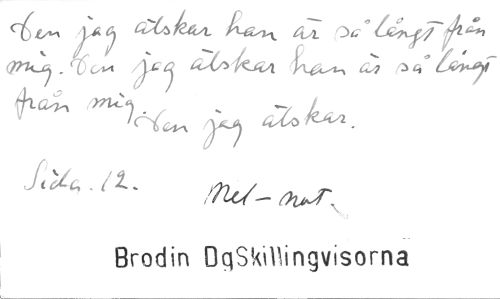 Den jag älskar han är så långt från
mig. Den jag älskar han är så långt
från mig. Den jag älskar.
Sida. 12.
Mel-not.
Brodin DgSkillingvisorna